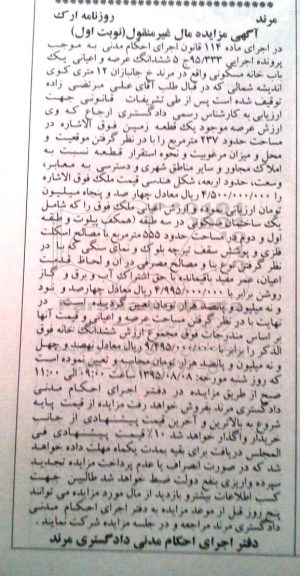 مرند
روزنامه ارک
آگهی مزایده مال غیرمنقول(نوبت اول)
در اجرای ماده ۱۱۴ قانون اجرای احکام مدنی به موجب
پرونده اجرایی ۹۵/۳۳۳ج ۵ ششدانگ عرصه و اعیانی یک
باب خانه مسکونی واقع در مرند خ جانبازان ۱۲ متری کوی
اندیشه شمالی که در قبال طلب آقای علی مرتضی زاده
توقیف شده است پس از طی تشریفات قانونی جهت
ارزیابی به کارشناس رسمی دادگستری ارجاع که وی
ارزش عرصه موجود یک قطعه زمین فوق الاشاره در
مساحت حدود ۲۳۷ مترمربع را با در نظر گرفتن موقعیت و
محل و میزان مرغوبیت و نحوه استقرار قطعه نسبت به
املاک مجاور و سایر مناطق شهری و دسترسی به معابر،
وسعت، حدود اربعه، شکل هندسی قیمت ملک فوق الاشاره
را ۴/۵۰۰/۰۰۰/۰۰۰ ریال معادل چهارصد و پنجاه میلیون
تومان ارزیابی نموده و ارزش اعیانی ملک فوق را که شامل
یک ساختمان مسکونی در سه طبقه (همکف پیلوت و طبقه
اول و دوم در مساحت حدود ۵۵۵ مترمربع با مصالح اسکلت
فلزی و پوشش سقف تیرچه بلوک و نمای سنگی که با در
نظر گرفتن نوع بنا و مصالح مصرفی در آن و لحاظ قدمت
اعیان، عمر مفید باقیمانده با حق اشتراک آب و برق و گاز
روشن برابر با ۴/۹۹۵/۰۰۰/۰۰۰ ریال معادل چهارصد و نود
و نه میلیون و پانصد هزار تومان تعیین گردیده است. در
نهایت با در نظر گرفتن مساحت عرصه و اعیانی و قیمت آنها
بر اساس مندرجات فوق مجموع ارزش ششدانگ خانه فوق
الذکر را برابر با ۹/۴۹۵/۰۰۰/۰۰۰ ریال معادل نهصد و چهل
و نه میلیون و پانصد هزار تومان محاسبه و تعیین نموده است
که روز شنبه مورخه: ۱۳۹۵/۰۸/۰۸ ساعت ۰۹:۰۰ الی ۱۱:۰۰
صبح از طریق مزایده در دفتر اجرای احکام مدنی
دادگستری مرند بفروش خواهد رفت مزایده از قیمت پایه
شروع به بالاترین و آخرین قیمت پیشنهادی از جانب
خریدار واگذار خواهد شد ۱۰٪ قیمت پیشنهادی فی
المجلس دریافت برای بقیه بمدت یکماه مهلت داده خواهد
شد که در صورت انصراف یا عدم پرداخت مزایده تجدید
سپرده واریزی بنفع دولت ضبط خواهد شد طالبین جهت
کسب اطلاعات بیشتر و بازدید از مال مورد مزایده می توانند
پنج روز قبل از موعد مزایده به دفتر اجرای احکام مدنی
دادگستری مرند مراجعه و در جلسه مزایده شرکت نمایند.
دفتر اجرای احکام مدنی دادگستری مرند